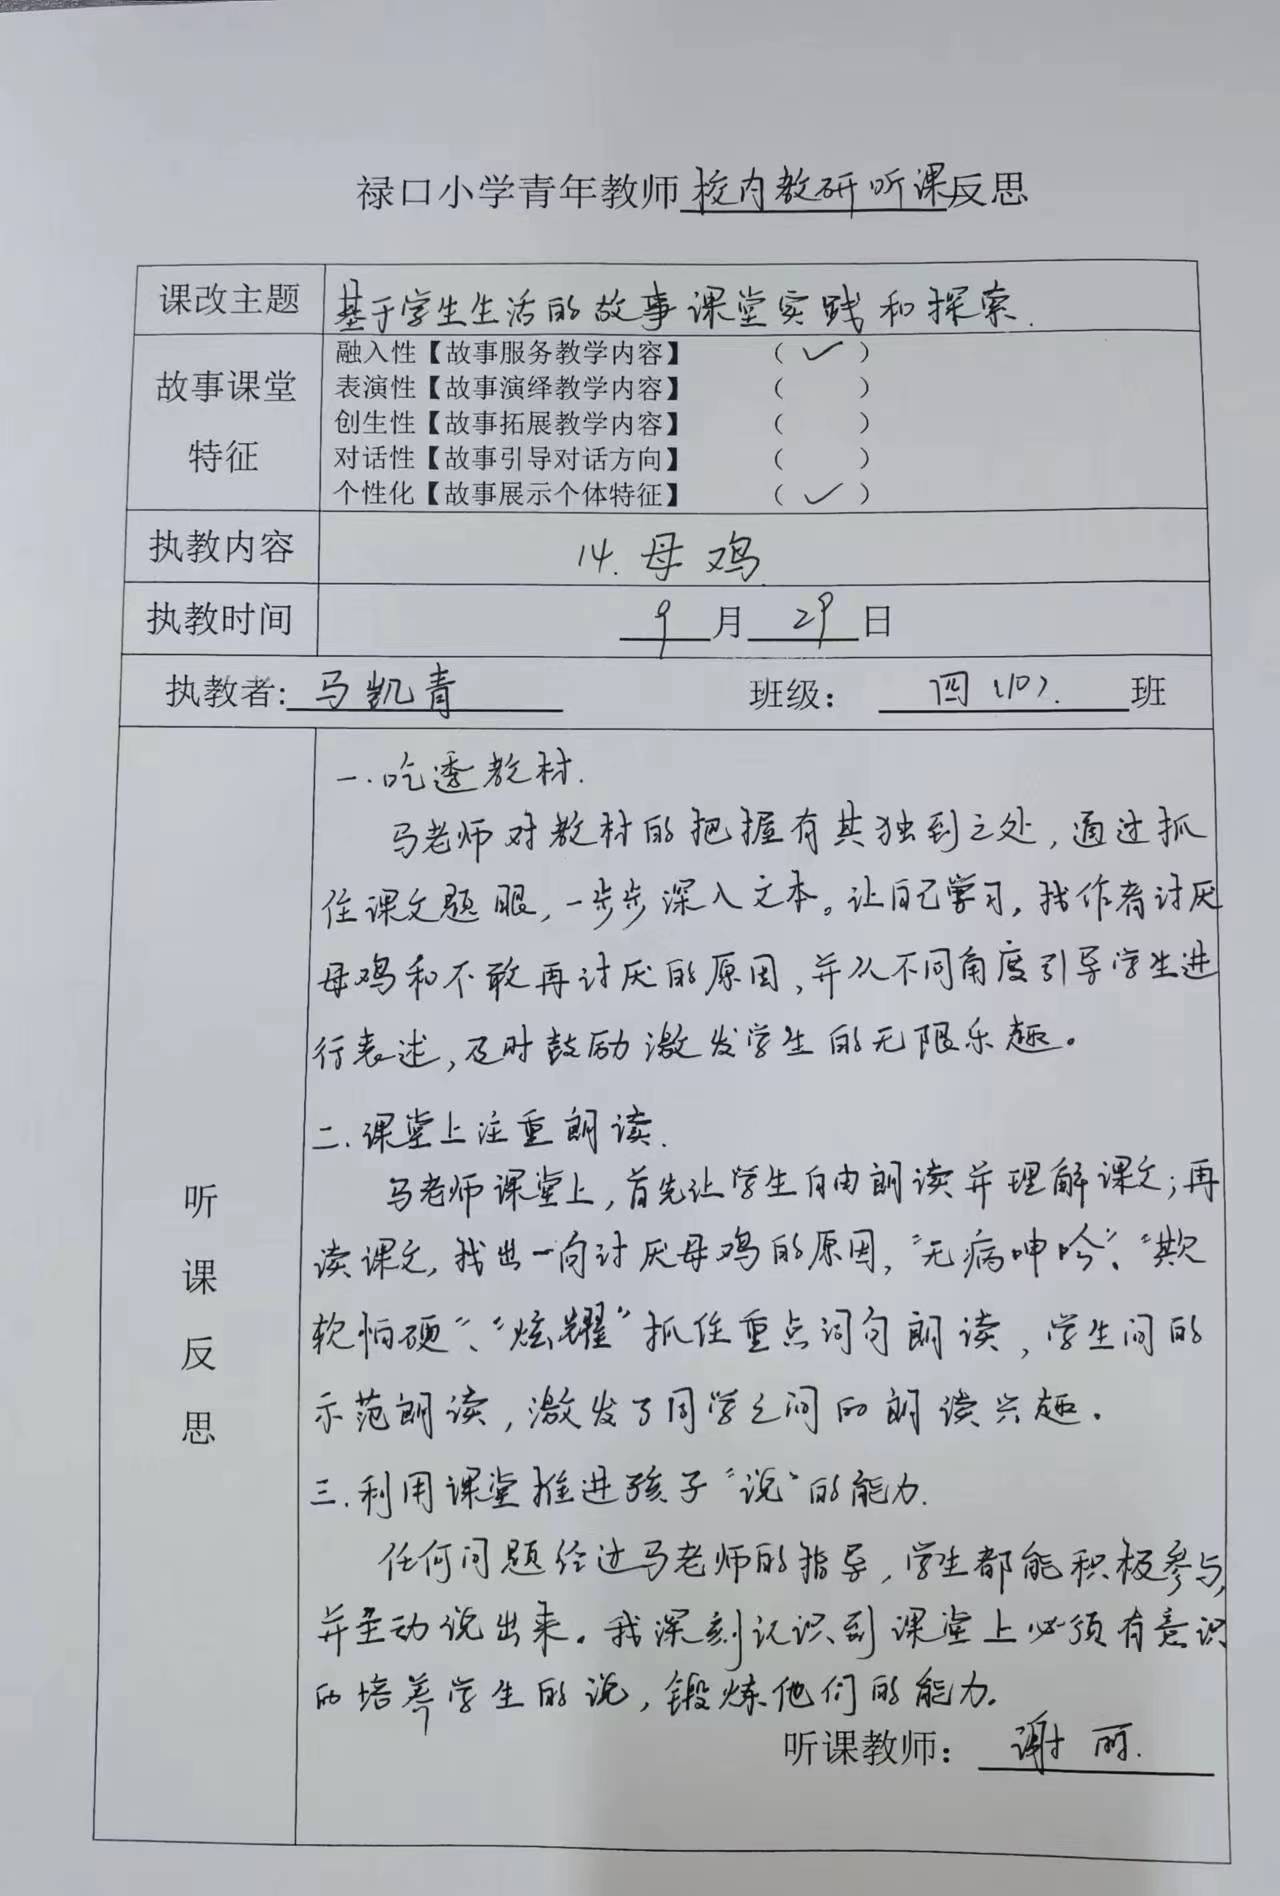 禄口小学青年教师校内教研听课反思
课改主题 基于学生生活的故事课堂实践和探索.
故事课堂特征
融入性【故事服务教学内容】 （✓）
表演性【故事演绎教学内容】 （ ）
创生性【故事拓展教学内容】 （ ）
对话性【故事引导对话方向】 （ ）
个性化【故事展示个体特征】 （✓）
执教内容 14.母鸡
执教时间 9月29日
执教者:马凯青 班级：四(10).班
听课反思
一.吃透教材.
马老师对教材的把握有其独到之处，通过抓
住课文题眼，一步步深入文本。让自己学习，找作者讨厌
母鸡和不敢再讨厌的原因，并从不同角度引导学生进
行表述，及时鼓励激发学生的无限乐趣。
二.课堂上注重朗读.
马老师课堂上，首先让学生自由朗读并理解课文；再
读课文，找出一向讨厌母鸡的原因，“无病呻吟”、“欺
软怕硬”、“炫耀”抓住重点词句朗读，学生间的
示范朗读，激发了同学之间的朗读兴趣。
三.利用课堂推进孩子“说”的能力.
任何问题经过马老师的指导，学生都能积极参与，
并主动说出来。我深刻认识到课堂上必须有意识
的培养学生的说，锻炼他们的能力。
听课教师：谢丽.